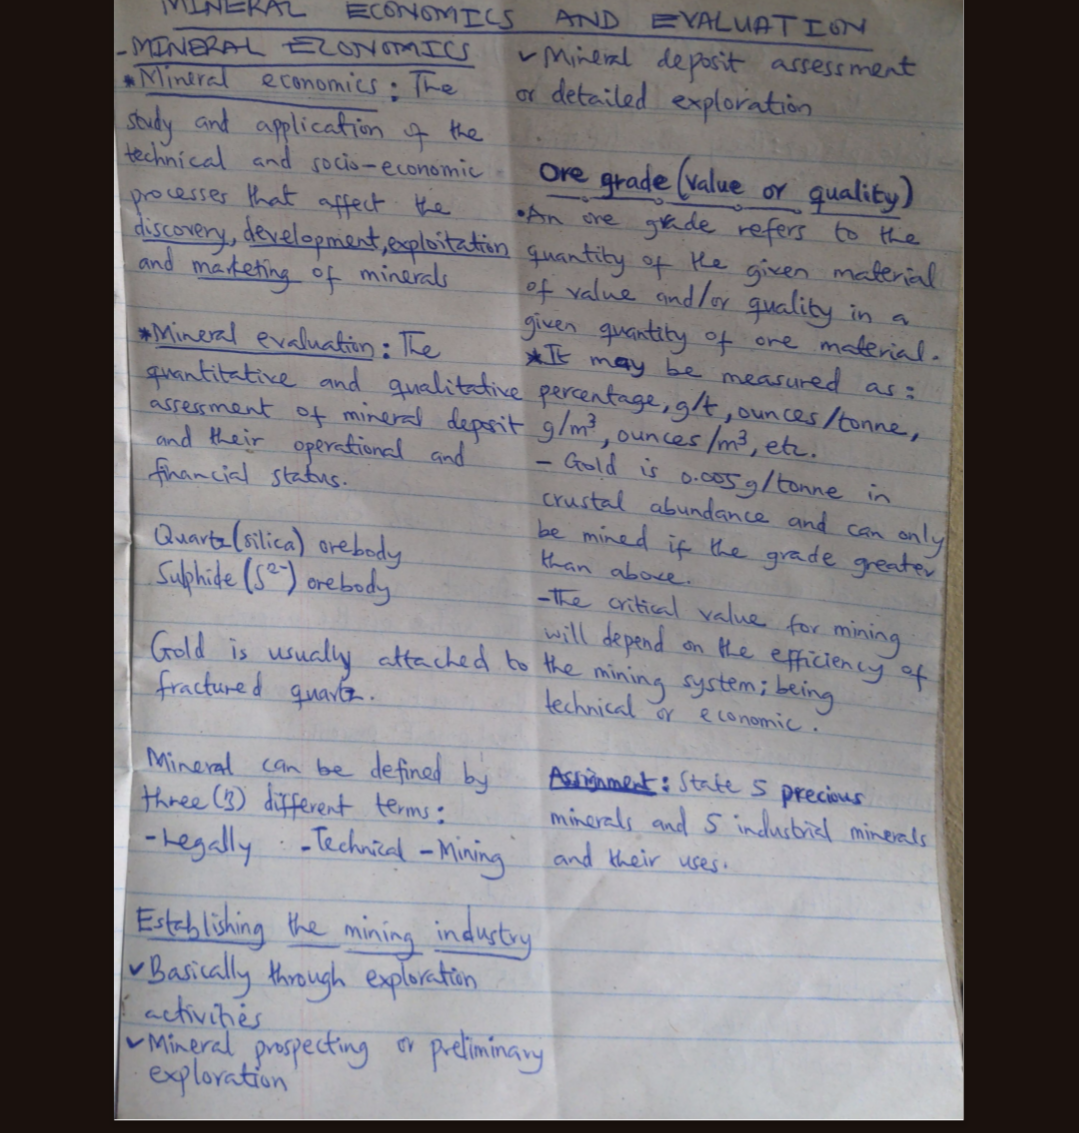 MINERAL ECONOMICS AND EVALUATION
- MINERAL ECONOMICS
* Mineral economics : The
study and application of the
technical and socio-economic
processes that affect the
discovery, development, exploitation
and marketing of minerals
* Mineral evaluation : The
quantitative and qualitative
assessment of mineral deposit
and their operational and
financial status.
Quartz (silica) orebody
Sulphide (S²⁻) orebody
Gold is usually attached to
fractured quartz.
Mineral can be defined by
three (3) different terms :
- Legally - Technical - Mining
Establishing the mining industry
✓ Basically through exploration
activities
✓ Mineral prospecting or preliminary
exploration
✓ Mineral deposit assessment
or detailed exploration
Ore grade (value or quality)
• An ore grade refers to the
quantity of the given material
of value and/or quality in a
given quantity of ore material.
* It may be measured as :
percentage, g/t, ounces/tonne,
g/m³, ounces/m³, etc.
- Gold is 0.005g/tonne in
crustal abundance and can only
be mined if the grade greater
than above.
- The critical value for mining
will depend on the efficiency of
the mining system; being
technical or economic.
Assignment : State 5 precious
minerals and 5 industrial minerals
and their uses.